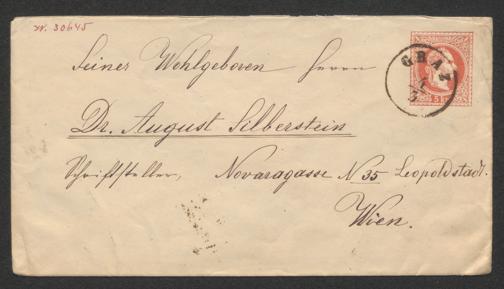 N. 30645
GRAZ
4
3
5
Seiner Wohlgeboren Herrn
Dr. August Silberstein
Schriftsteller, Novaragasse N 35 Leopoldstadt.
Wien.